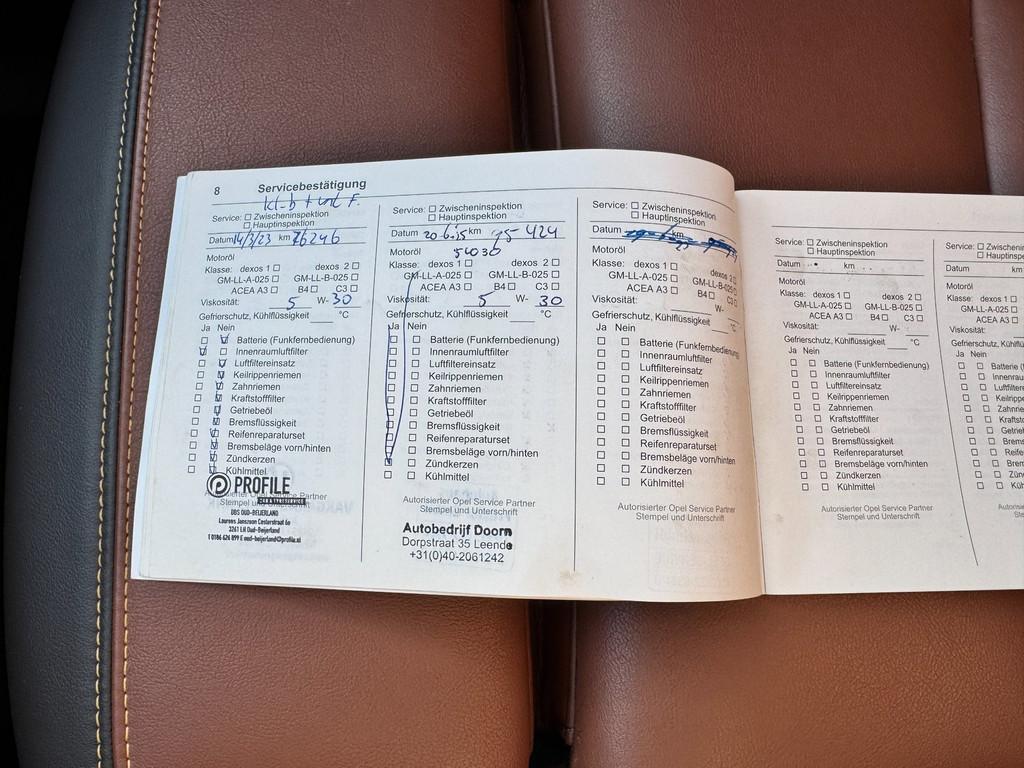 8 Servicebestätigung
Service: ☐ Zwischeninspektion
☐ Hauptinspektion
Datum 14/3/23 km 76246
Motoröl
Klasse: dexos 1 ☐ dexos 2 ☐
GM-LL-A-025 ☐ GM-LL-B-025 ☐
ACEA A3 ☐ B4 ☐ C3 ☐
Viskosität: 5 W- 30
Gefrierschutz, Kühlflüssigkeit °C
Ja Nein
Batterie (Funkfernbedienung)
Innenraumluftfilter
Luftfiltereinsatz
Keilrippenriemen
Zahnriemen
Kraftstofffilter
Getriebeöl
Bremsflüssigkeit
Reifenreparaturset
Bremsbeläge vorn/hinten
Zündkerzen
Kühlmittel
PROFILE
Autorisierter Opel Service Partner
Stempel und Unterschrift
DBS OUD-BEIJERLAND
Laurens Janszoon Costerstraat 6a
3261 LH Oud-Beijerland
T 0186 626 899 E oud-beijerland@profile.nl
Service: ☐ Zwischeninspektion
☐ Hauptinspektion
Datum km 424
Motoröl
Klasse: dexos 1 ☐ dexos 2 ☐
GM-LL-A-025 ☐ GM-LL-B-025 ☐
ACEA A3 ☐ B4 ☐ C3 ☐
Viskosität: 5 W- 30
Gefrierschutz, Kühlflüssigkeit °C
Ja Nein
Batterie (Funkfernbedienung)
Innenraumluftfilter
Luftfiltereinsatz
Keilrippenriemen
Zahnriemen
Kraftstofffilter
Getriebeöl
Bremsflüssigkeit
Reifenreparaturset
Bremsbeläge vorn/hinten
Zündkerzen
Kühlmittel
Autorisierter Opel Service Partner
Stempel und Unterschrift
Autobedrijf Doorn
Dorpstraat 35 Leende
+31(0)40-2061242
Service: ☐ Zwischeninspektion
☐ Hauptinspektion
Datum km
Motoröl
Klasse: dexos 1 ☐ dexos 2 ☐
GM-LL-A-025 ☐ GM-LL-B-025 ☐
ACEA A3 ☐ B4 ☐ C3 ☐
Viskosität: W-
Gefrierschutz, Kühlflüssigkeit °C
Ja Nein
Batterie (Funkfernbedienung)
Innenraumluftfilter
Luftfiltereinsatz
Keilrippenriemen
Zahnriemen
Kraftstofffilter
Getriebeöl
Bremsflüssigkeit
Reifenreparaturset
Bremsbeläge vorn/hinten
Zündkerzen
Kühlmittel
Autorisierter Opel Service Partner
Stempel und Unterschrift
Service: ☐ Zwischeninspektion
☐ Hauptinspektion
Datum km
Motoröl
Klasse: dexos 1 ☐ dexos 2 ☐
GM-LL-A-025 ☐ GM-LL-B-025 ☐
ACEA A3 ☐ B4 ☐ C3 ☐
Viskosität: W-
Gefrierschutz, Kühlflüssigkeit °C
Ja Nein
Batterie (Funkfernbedienung)
Innenraumluftfilter
Luftfiltereinsatz
Keilrippenriemen
Zahnriemen
Kraftstofffilter
Getriebeöl
Bremsflüssigkeit
Reifenreparaturset
Bremsbeläge vorn/hinten
Zündkerzen
Kühlmittel
Autorisierter Opel Service Partner
Stempel und Unterschrift
Service: ☐ Zwischeninsp
☐ Hauptinspe
Datum km
Motoröl
Klasse: dexos 1 ☐
GM-LL-A-025 ☐
ACEA A3 ☐
Viskosität:
Gefrierschutz, Kühlflü
Ja Nein
Batterie (F
Innenrau
Luftfilter
Keilripp
Zahnrie
Kraftsto
Getrieb
Bremsf
Reifen
Brems
Zündk
Kühlm
Autorisierter
Stem